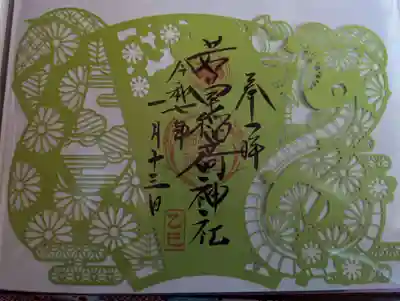 奉拝
稲荷神社
令和七年
一月十三日
乙巳